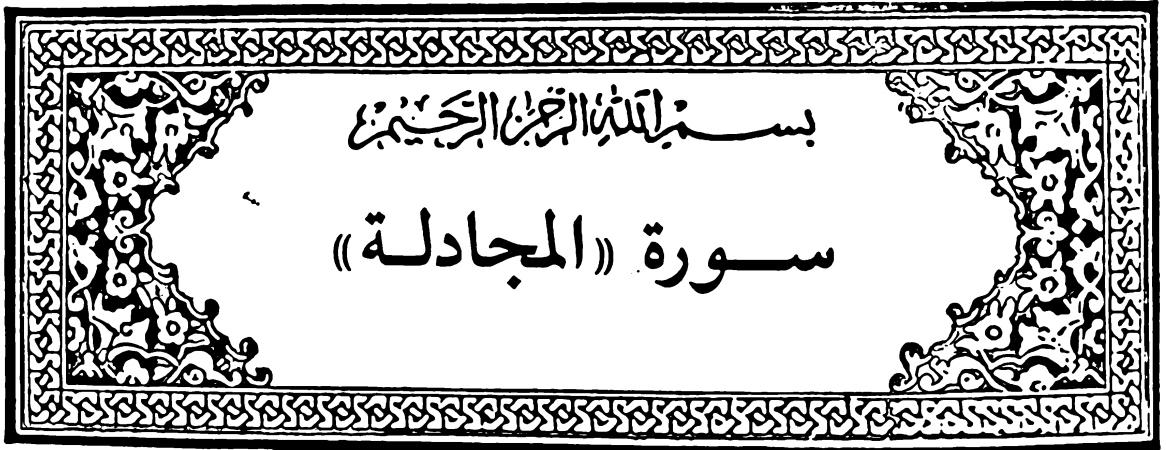 بسم الله الرحمن الرحيم
سورة «المجادلة»